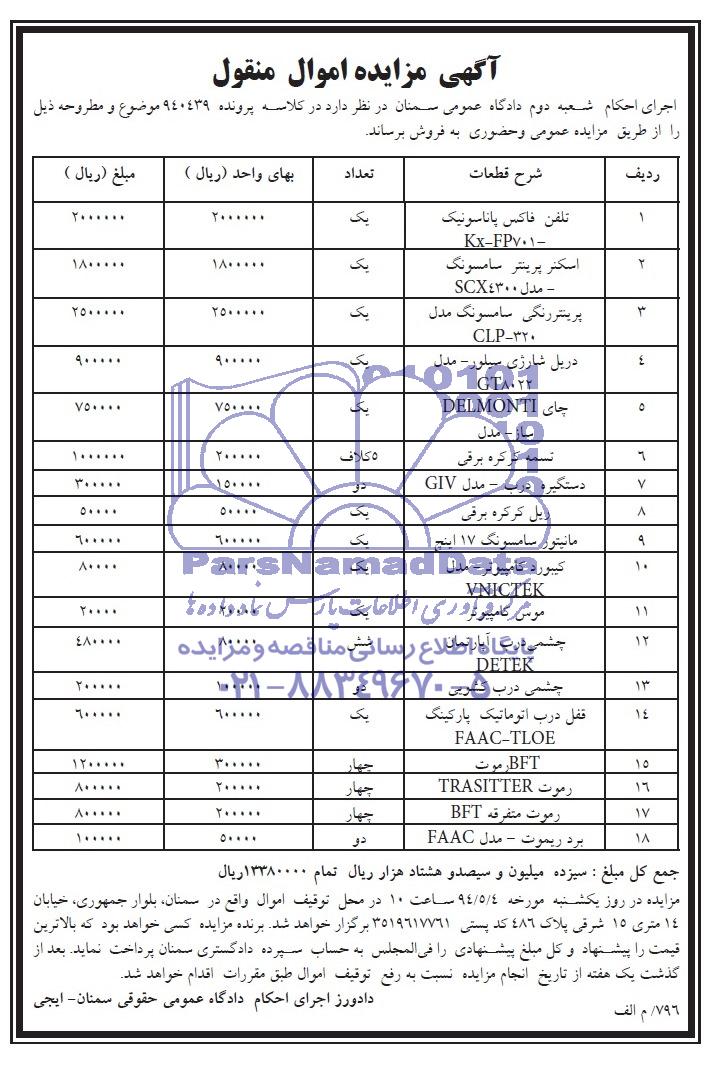 آگهی مزایده اموال منقول
اجرای احکام شعبه دوم دادگاه عمومی سمنان در نظر دارد در کلاسه پرونده ۹۴۰۴۳۹ موضوع و مطروحه ذیل
را از طریق مزایده عمومی وحضوری به فروش برساند.
ردیف شرح قطعات تعداد بهای واحد (ریال ) مبلغ (ریال )
۱ تلفن فاکس پاناسونیک یک ۲۰۰۰۰۰۰ ۲۰۰۰۰۰۰
Kx-FP۷۰۱-
۲ اسکنر پرینتر سامسونگ یک ۱۸۰۰۰۰۰ ۱۸۰۰۰۰۰
- مدل SCX٤۳۰۰
۳ پرینتررنگی سامسونگ مدل یک ۲۵۰۰۰۰۰ ۲۵۰۰۰۰۰
CLP-۳۲۰
٤ دریل شارژی سیلور- مدل یک ۹۰۰۰۰۰ ۹۰۰۰۰۰
GT۸۰۲۲
۵ چای DELMONTI یک ۷۵۰۰۰۰ ۷۵۰۰۰۰
ساز- مدل
٦ تسمه کرکره برقی ۵کلاف ۲۰۰۰۰۰ ۱۰۰۰۰۰۰
۷ دستگیره درب – مدل GIV دو ۱۵۰۰۰۰ ۳۰۰۰۰۰
۸ ریل کرکره برقی یک ۵۰۰۰۰ ۵۰۰۰۰
۹ مانیتور سامسونگ ۱۷ اینچ یک ٦۰۰۰۰۰ ٦۰۰۰۰۰
۱۰ کیبورد کامپیوتر- مدل یک ۸۰۰۰۰ ۸۰۰۰۰
VNICTEK
۱۱ موس کامپیوتر یک ۲۰۰۰۰ ۲۰۰۰۰
۱۲ چشمی درب آپارتمان شش ۸۰۰۰۰ ٤۸۰۰۰۰
DETEK
۱۳ چشمی درب کشویی دو ۱۰۰۰۰۰ ۲۰۰۰۰۰
۱٤ قفل درب اتوماتیک پارکینگ یک ٦۰۰۰۰۰ ٦۰۰۰۰۰
FAAC-TLOE
۱۵ BFTرموت چهار ۳۰۰۰۰۰ ۱۲۰۰۰۰۰
۱٦ رموت TRASITTER چهار ۲۰۰۰۰۰ ۸۰۰۰۰۰
۱۷ رموت متفرقه BFT چهار ۲۰۰۰۰۰ ۸۰۰۰۰۰
۱۸ برد ریموت – مدل FAAC دو ۵۰۰۰۰ ۱۰۰۰۰۰
جمع کل مبلغ : سیزده میلیون و سیصدو هشتاد هزار ریال تمام ۱۳۳۸۰۰۰۰ریال
مزایده در روز یکشنبه مورخه ۹۴/۵/۴ ساعت ۱۰ در محل توقیف اموال واقع در سمنان، بلوار جمهوری، خیابان
۱۴ متری ۱۵ شرقی پلاک ۴۸۶ کد پستی ۳۵۱۹۶۱۷۷۶۱ برگزار خواهد شد. برنده مزایده کسی خواهد بود که بالاترین
قیمت را پیشنهاد و کل مبلغ پیشنهادی را فی‌المجلس به حساب سپرده دادگستری سمنان پرداخت نماید. بعد از
گذشت یک هفته از تاریخ انجام مزایده نسبت به رفع توقیف اموال طبق مقررات اقدام خواهد شد.
دادورز اجرای احکام دادگاه عمومی حقوقی سمنان- ایجی
۷۹۶/ م الف
010101
001
10
1
0
ParsNamadData
مرکز فن‌آوری اطلاعات پارس نماد داده‌ها
پایگاه اطلاع رسانی مناقصه و مزایده
۰۲۱-۸۸۳۴۹۶۷۰-۵